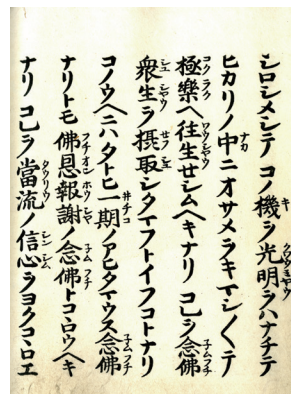 シロシメシテコノ機ヲ光明ヲハナチテ
ヒカリノ中ニオサメヲキマシ〱テ
極樂ヘ往生セシムヘキナリコレヲ念佛
衆生ヲ摂取シタマフトイフコトナリ
コノウヘニハタトヒ一期ノアヒタマウス念佛
ナリトモ佛恩報謝ノ念佛トコヽロウヘキ
ナリコレヲ當流ノ信心ヲヨクコヽロエ